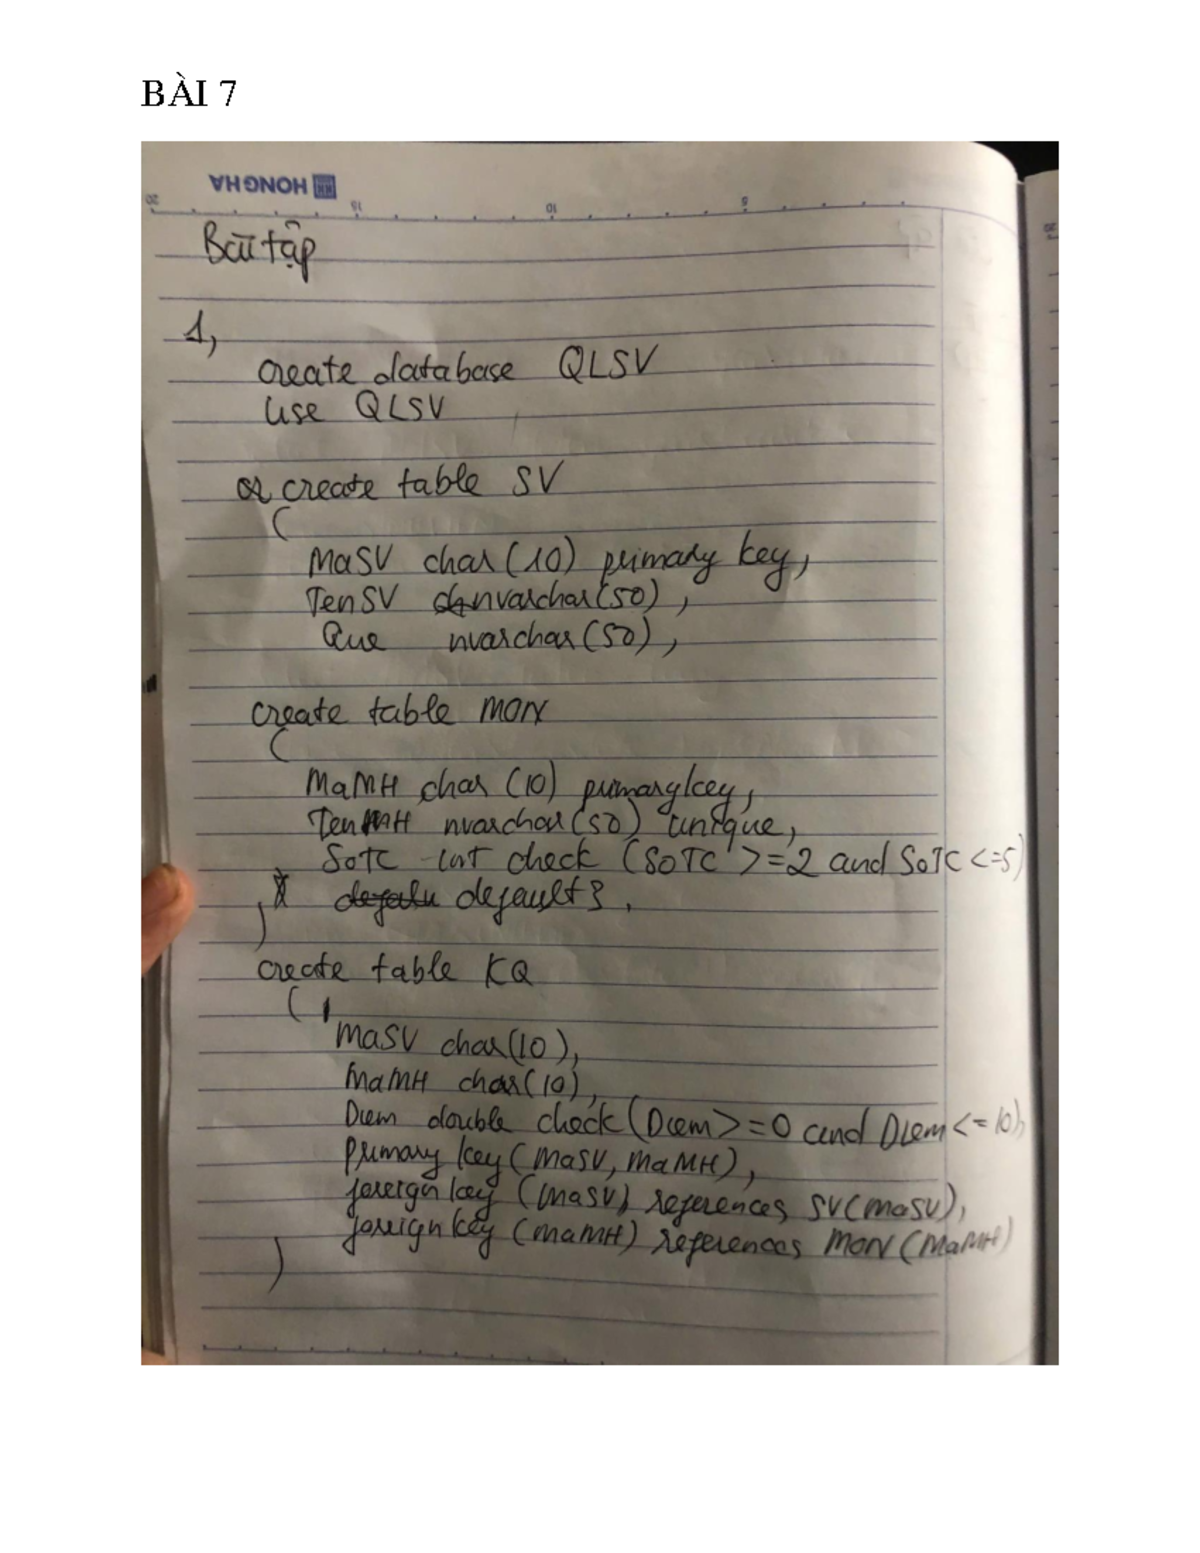 BÀI 7
HONG HA
20 15 10 5 20
Bài tập
1,
create database QLSV
use QLSV
create table SV
(
MaSV char(10) primary key,
TenSV nvarchar(50),
Que nvarchar(50),
create table MON
(
MaMH char (10) primary key,
TenMH nvarchar(50) unique,
SoTC int check (SoTC >=2 and SoTC <=5)
default 3,
)
create table KQ
(
MaSV char(10),
MaMH char(10),
Diem double check(Diem>=0 and Diem<=10),
primary key(MaSV, MaMH),
foreign key (MaSV) references SV(MaSV),
foreign key (MaMH) references MON(MaMH)
)